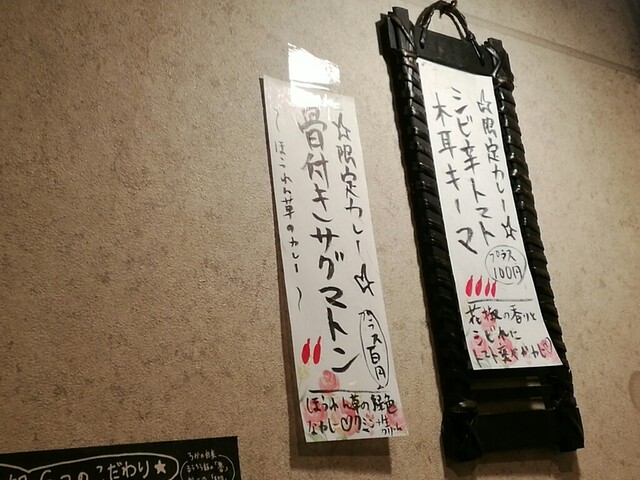 ☆限定カレー☆
シビ辛トマト
木耳キーマ
プラス
100円
花椒の香りと
シビれに
トマト爽やかに♡
☆限定カレー☆
骨付きサグマトン
〜ほうれん草のカレー〜
プラス百円
ほうれん草の緑色
なカレー♡クミン
のこだわり★